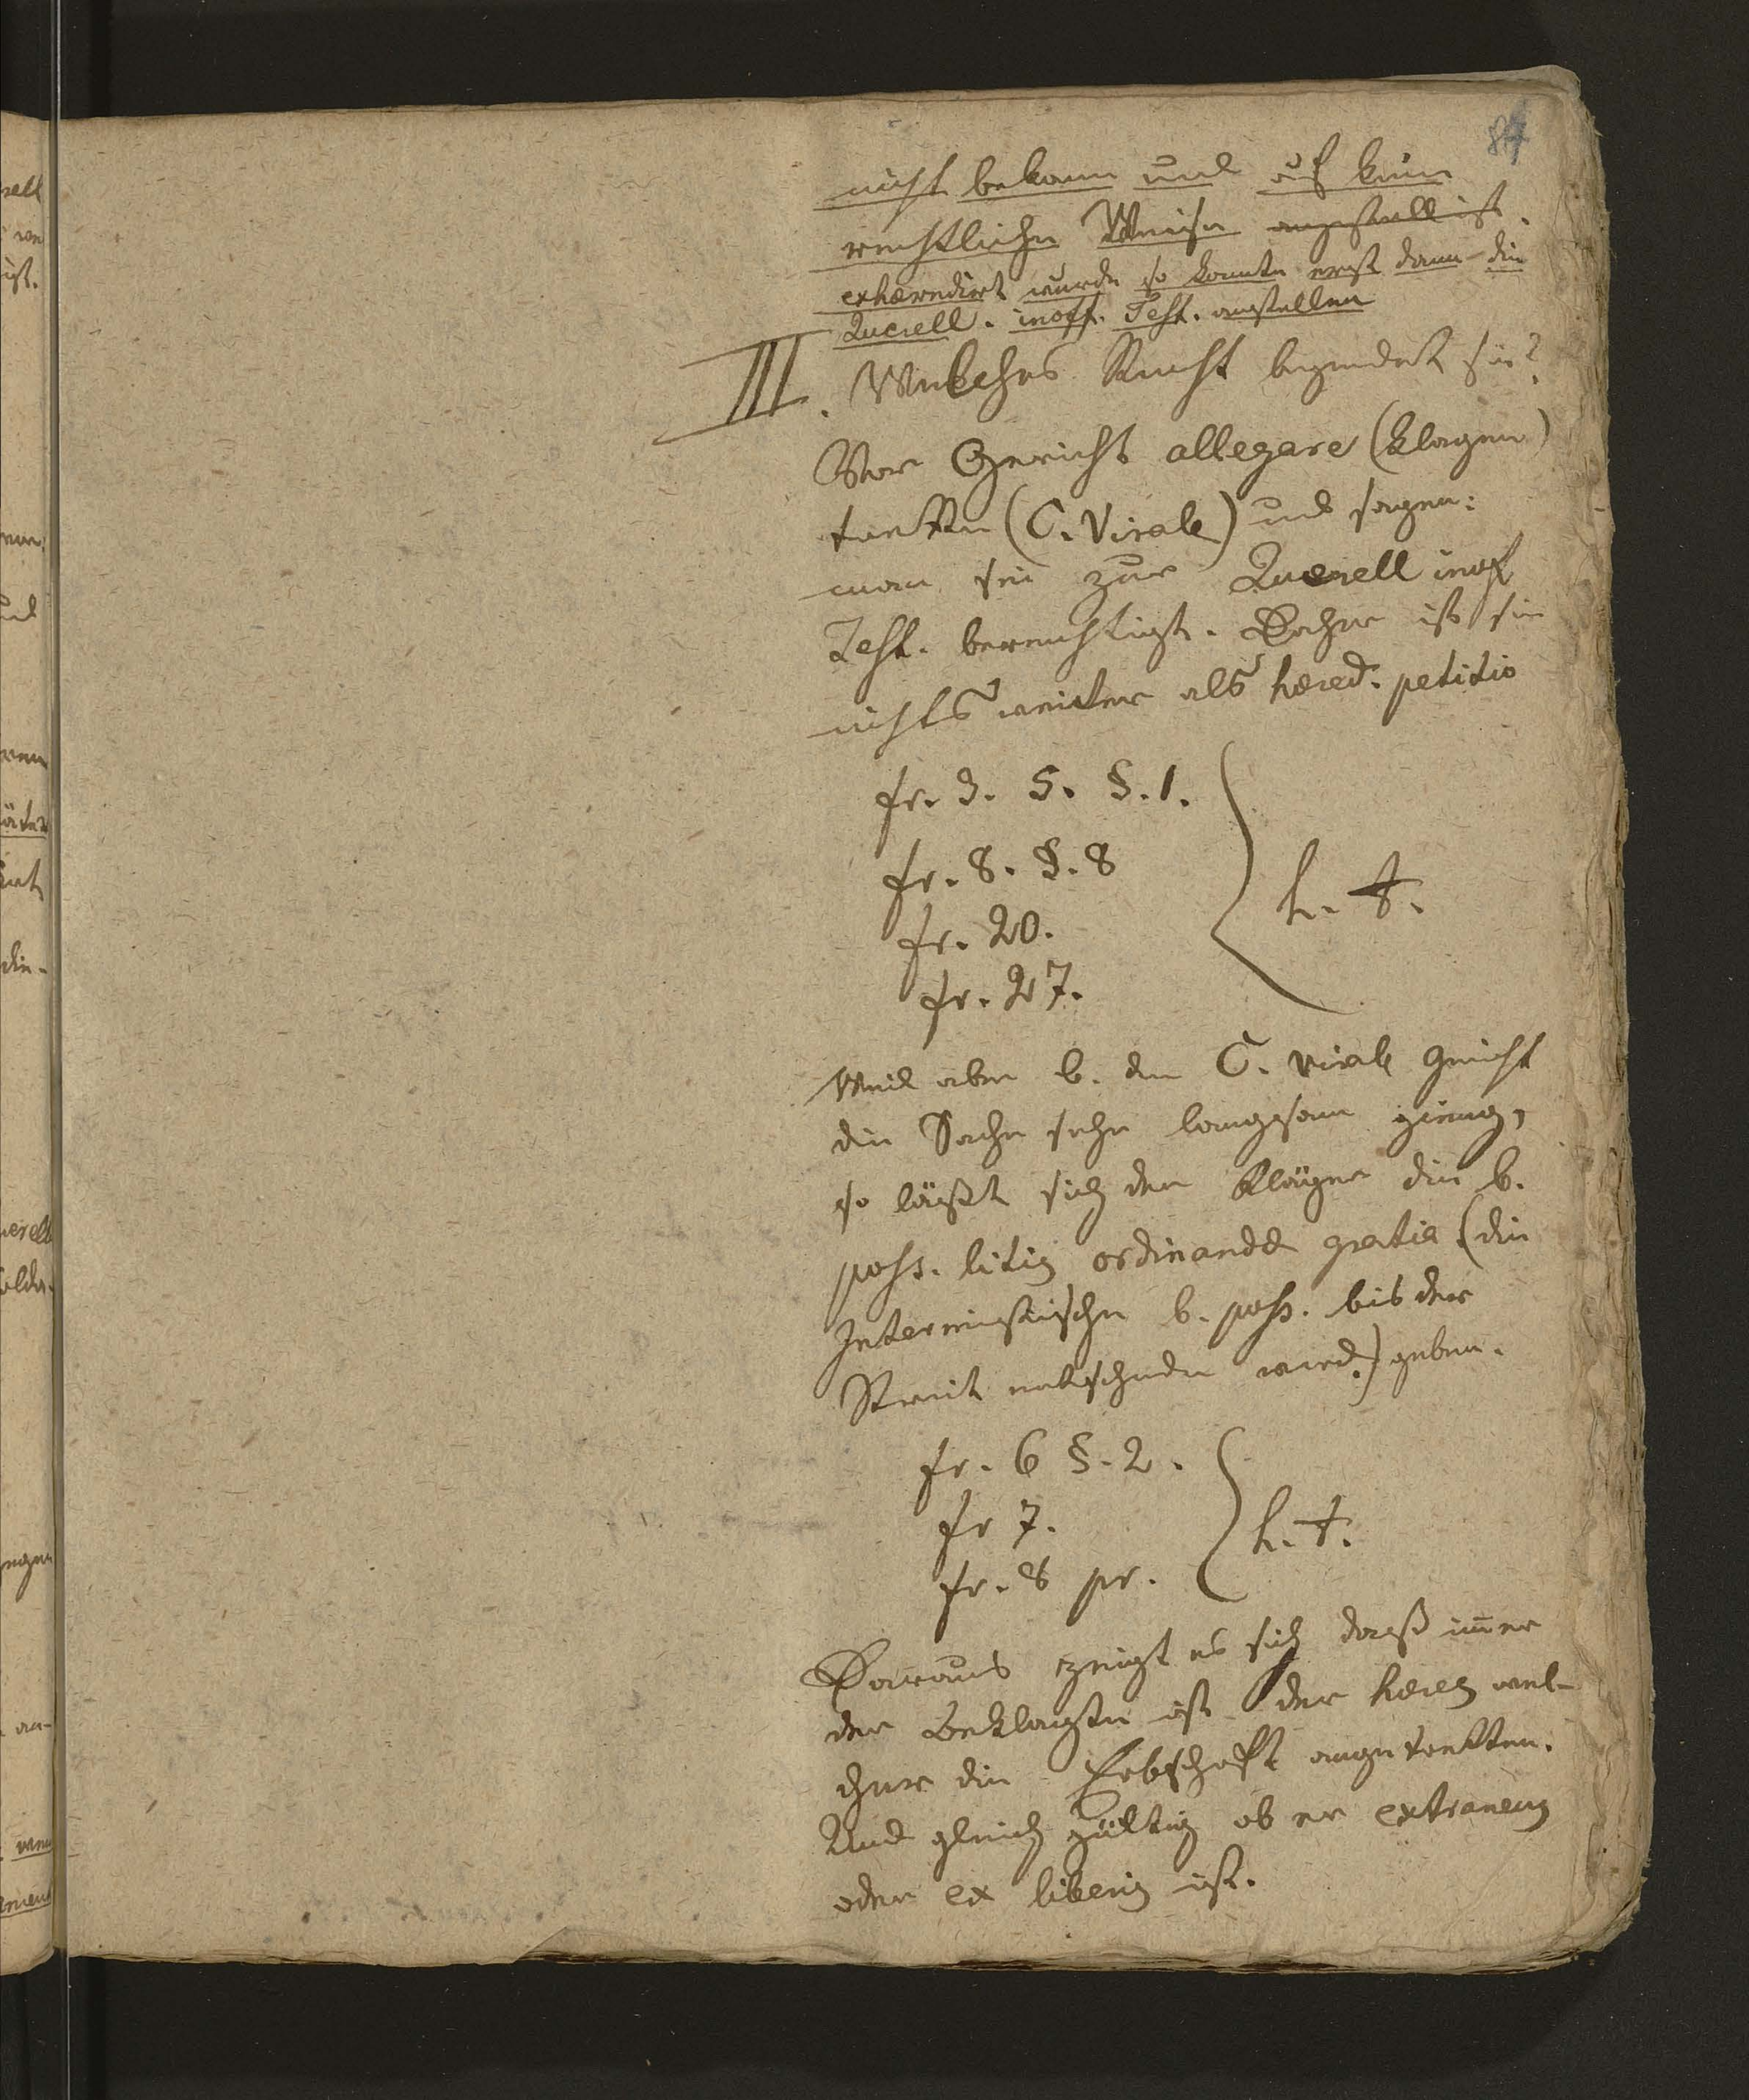 84
nicht bekam und auf keine
rechtliche Weise angestellt ist.
exhæredirt wurde so konnte erst dann die
Querell. inoff. Test. anstellen
III. Welches Recht begründet sie?
Vor Gericht allegare (klagen)
tretten (C. Virale) und sagen:
man sei zur Querell inof
Test. berechtigt. Daher ist sie
nichts weiter als hæred. petitio
fr. 3. 5. §. 1.
fr. 8. §. 8
fr. 20.
fr. 27.
h. t.
Weil aber b. den C. virale Gericht
die Sache sehr langsam gieng,
so läßt sich der Kläger die b.
poss. litis ordinandæ gratia (die
Interimistische b. poss. bis der
Streit entschieden wird.) geben.
fr. 6 §. 2.
fr 7.
fr. 8 pr.
h. t.
Daraus zeigt es sich daß im̅er
der Beklagte ist der hæres wel-
cher die Erbschaft angetretten.
Und gleich gültig ob er extraneus
oder ex liberis ist.